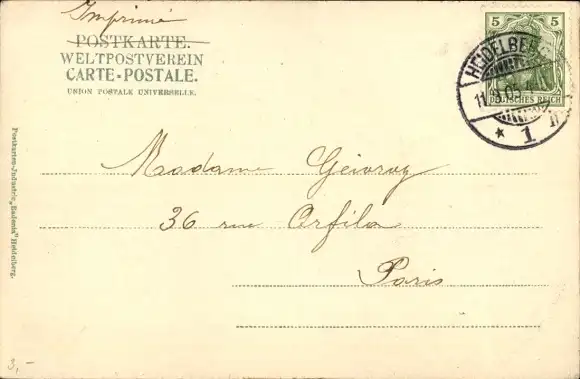 Imprimé
POSTKARTE.
WELTPOSTVEREIN
CARTE-POSTALE.
UNION POSTALE UNIVERSELLE.
5 5
DEUTSCHES REICH
HEIDELBER
11.
05
* 1
Madame Geivroy
36 rue Orfila
Paris
Postkarten-Industrie „Badenia" Heidelberg.
3,-